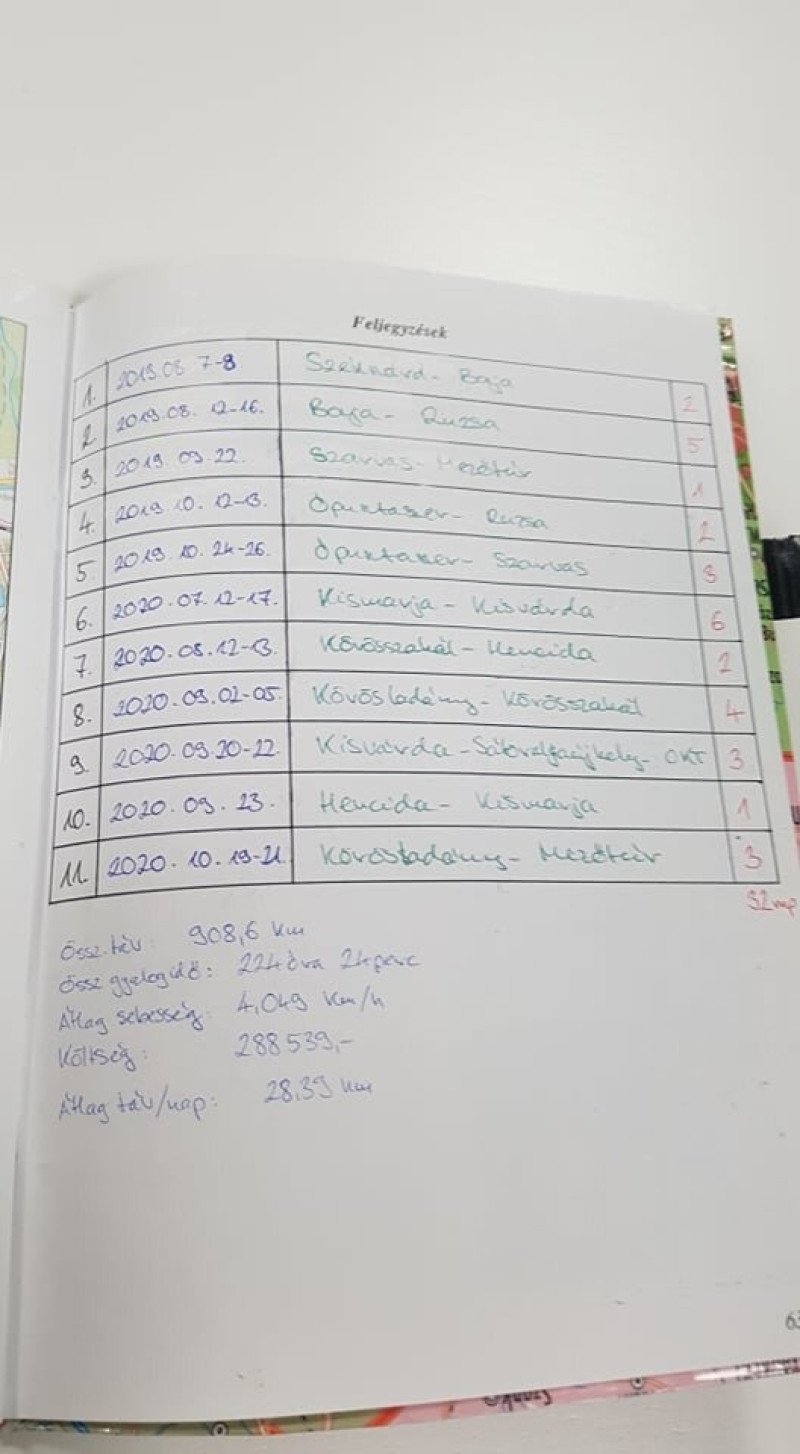 Feljegyzések
1. 2019.08 7-8 Szekszárd - Baja 2
2. 2019.08. 12-16. Baja - Ruzsa 5
3. 2019.09.22. Szarvas - Mezőtúr 1
4. 2019.10.12-13. Ópusztaszer - Ruzsa 2
5. 2019.10.24-26. Ópusztaszer - Szarvas 3
6. 2020.07.12-17. Kismarja - Kisvárda 6
7. 2020.08.12-13. Körösszakál - Hencida 2
8. 2020.09.02-05. Körösladány - Körösszakál 4
9. 2020.09.20-22. Kisvárda - Sátoraljaújhely OKT 3
10. 2020.09.23. Hencida - Kismarja 1
11. 2020.10.19-21. Körösladány - Mezőtúr 3
32 nap
Össz. táv: 908,6 km
Össz gyalogidő: 224 óra 24 perc
Átlag sebesség: 4,049 km/h
Költség: 288 539,-
Átlag táv/nap: 28,39 km